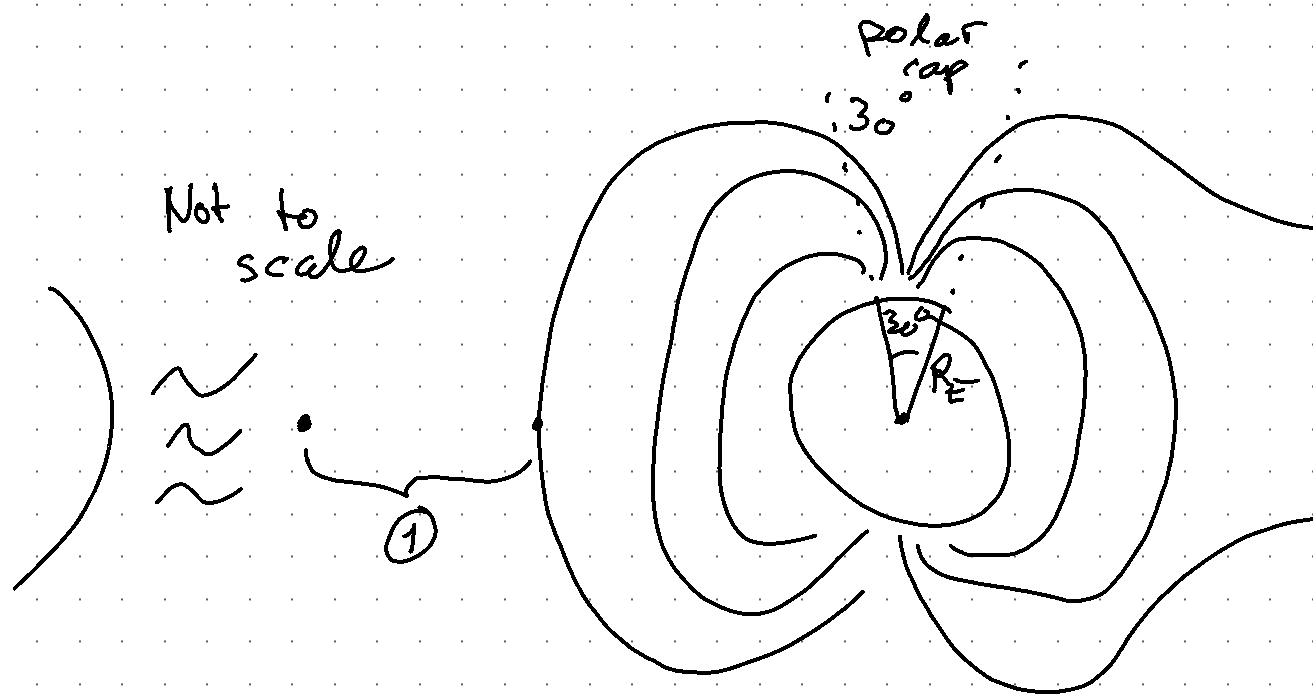 polar
cap
30°
Not to
scale
30°
R_E
①